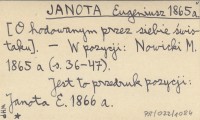 JANOTA Eugeniusz 1865 a
[O hodowanym przez siebie świs-
taku]. — W pozycji: Nowicki M.
1865 a (s. 36-47).
Jest to przedruk pozycji:
Janota E. 1866 a.